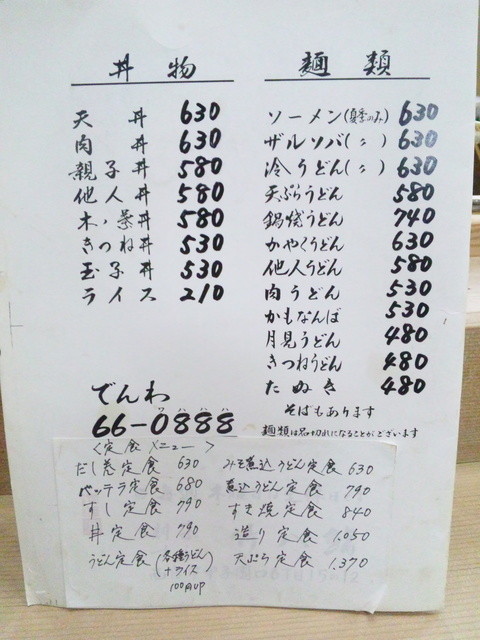 丼物
天丼 630
肉丼 630
親子丼 580
他人丼 580
木の葉丼 580
きつね丼 530
玉子丼 530
ライス 210
でんわ
ワハハハ
66-0888
麺類
ソーメン(夏季のみ) 630
ザルソバ(〃) 630
冷うどん(〃) 630
天ぷらうどん 580
鍋焼うどん 740
かやくうどん 630
他人うどん 580
肉うどん 530
かもなんば 530
月見うどん 480
きつねうどん 480
たぬき 480
そばもあります
麺類は品切れになることがございます
〈定食メニュー〉
だし巻定食 630
バッテラ定食 680
すし定食 790
丼定食 790
うどん定食(各種うどん+ライス) 100円UP
みそ煮込うどん定食 630
煮込うどん定食 790
すき焼定食 840
造り定食 1.050
天ぷら定食 1.370